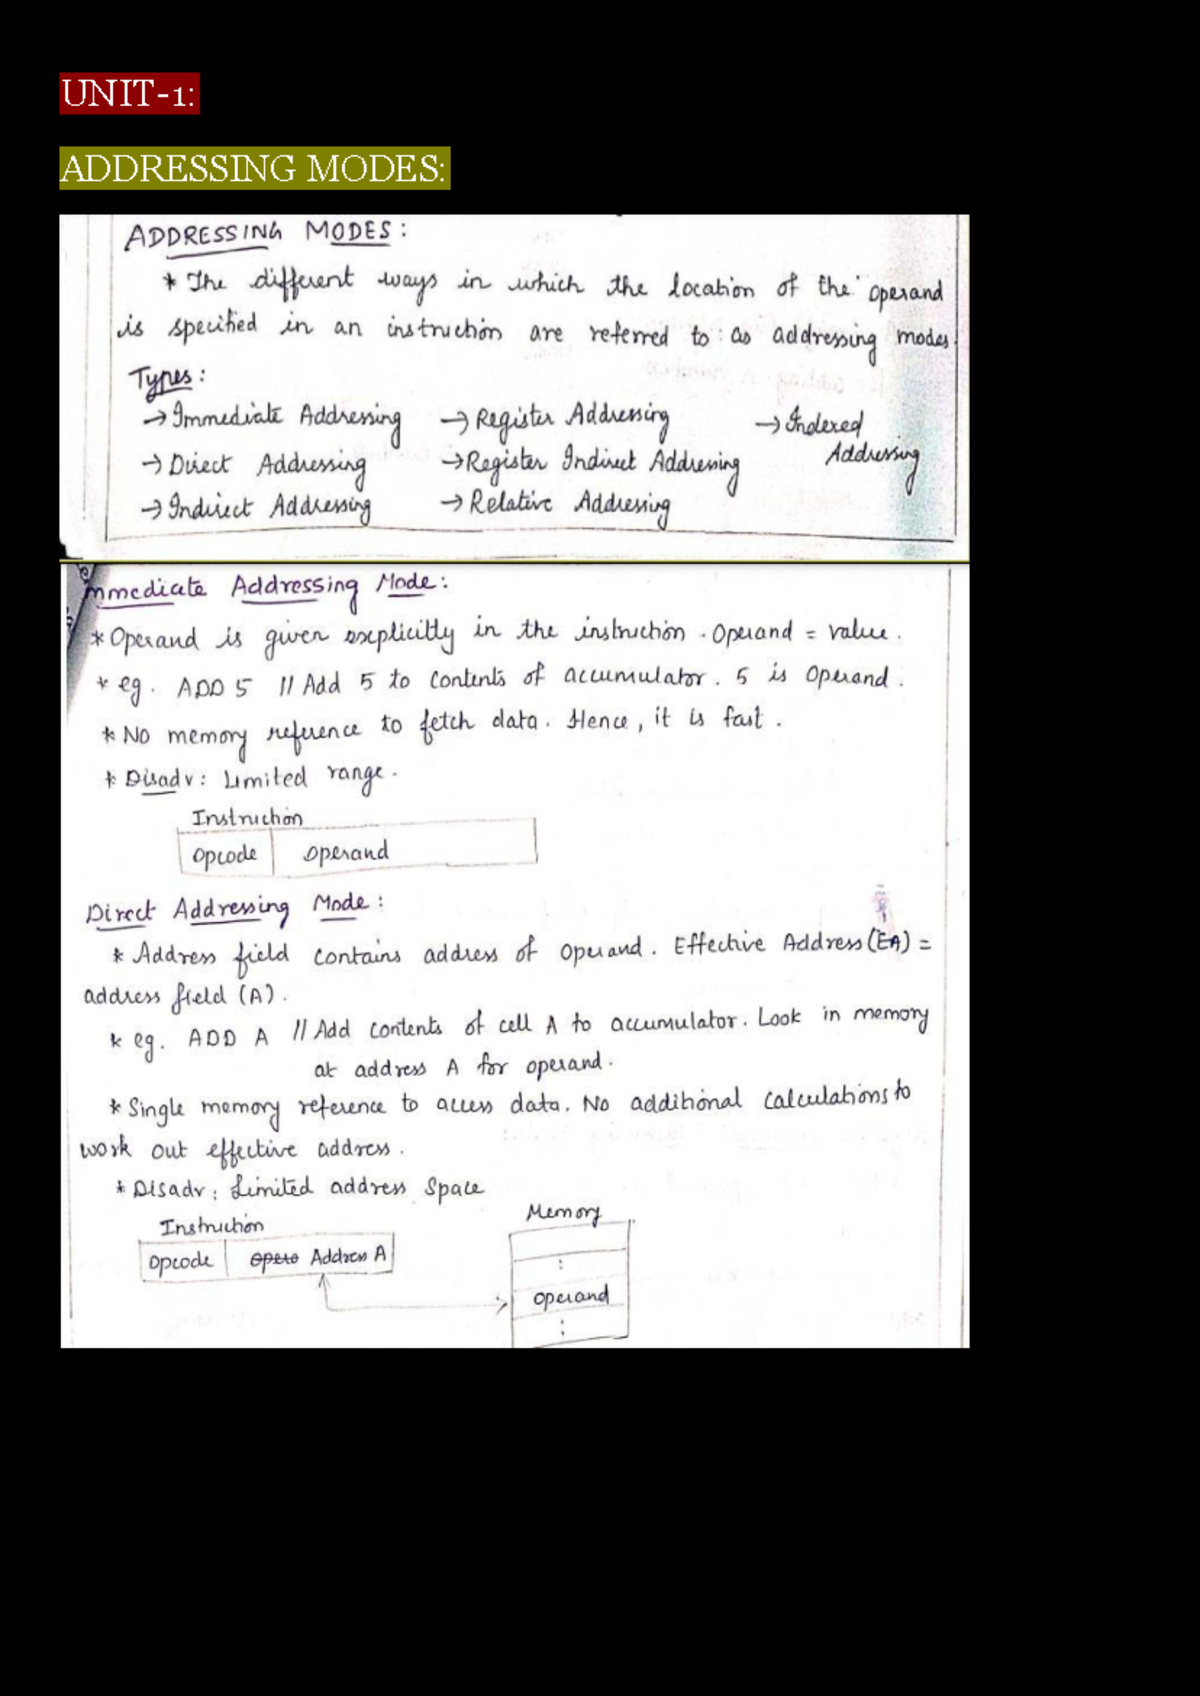 UNIT-1:
ADDRESSING MODES:
ADDRESSING MODES:
* The different ways in which the location of the operand
is specified in an instruction are referred to as addressing modes.
Types:
→ Immediate Addressing → Register Addressing → Indexed
Addressing
→ Direct Addressing → Register Indirect Addressing
→ Indirect Addressing → Relative Addressing
Immediate Addressing Mode:
* Operand is given explicitly in the instruction. Operand = value.
* eg. ADD 5 // Add 5 to contents of accumulator. 5 is operand.
* No memory reference to fetch data. Hence, it is fast.
* Disadv: Limited range.
Instruction
Opcode Operand
Direct Addressing Mode:
* Address field contains address of operand. Effective Address (EA) =
address field (A).
* eg. ADD A // Add contents of cell A to accumulator. Look in memory
at address A for operand.
* Single memory reference to access data. No additional calculations to
work out effective address.
* Disadv: Limited address space
Instruction
Memory
Opcode Address A
:
operand
: